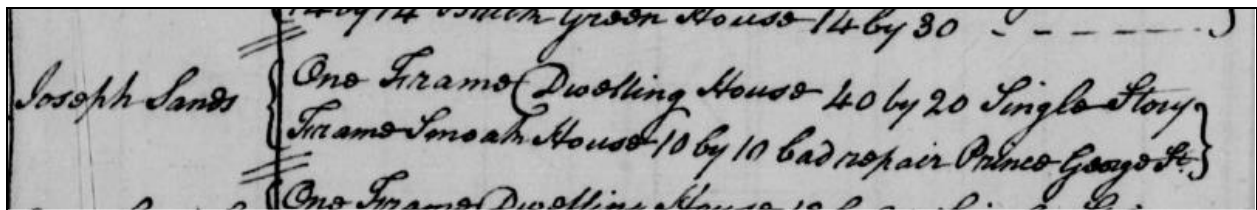 14 by 14 Green House 14 by 30 - - - - -
Joseph Sands
One Frame Dwelling House 40 by 20 Single Story
Frame Smoak House 10 by 10 bad repair Prince George St.
One Frame Dwelling House